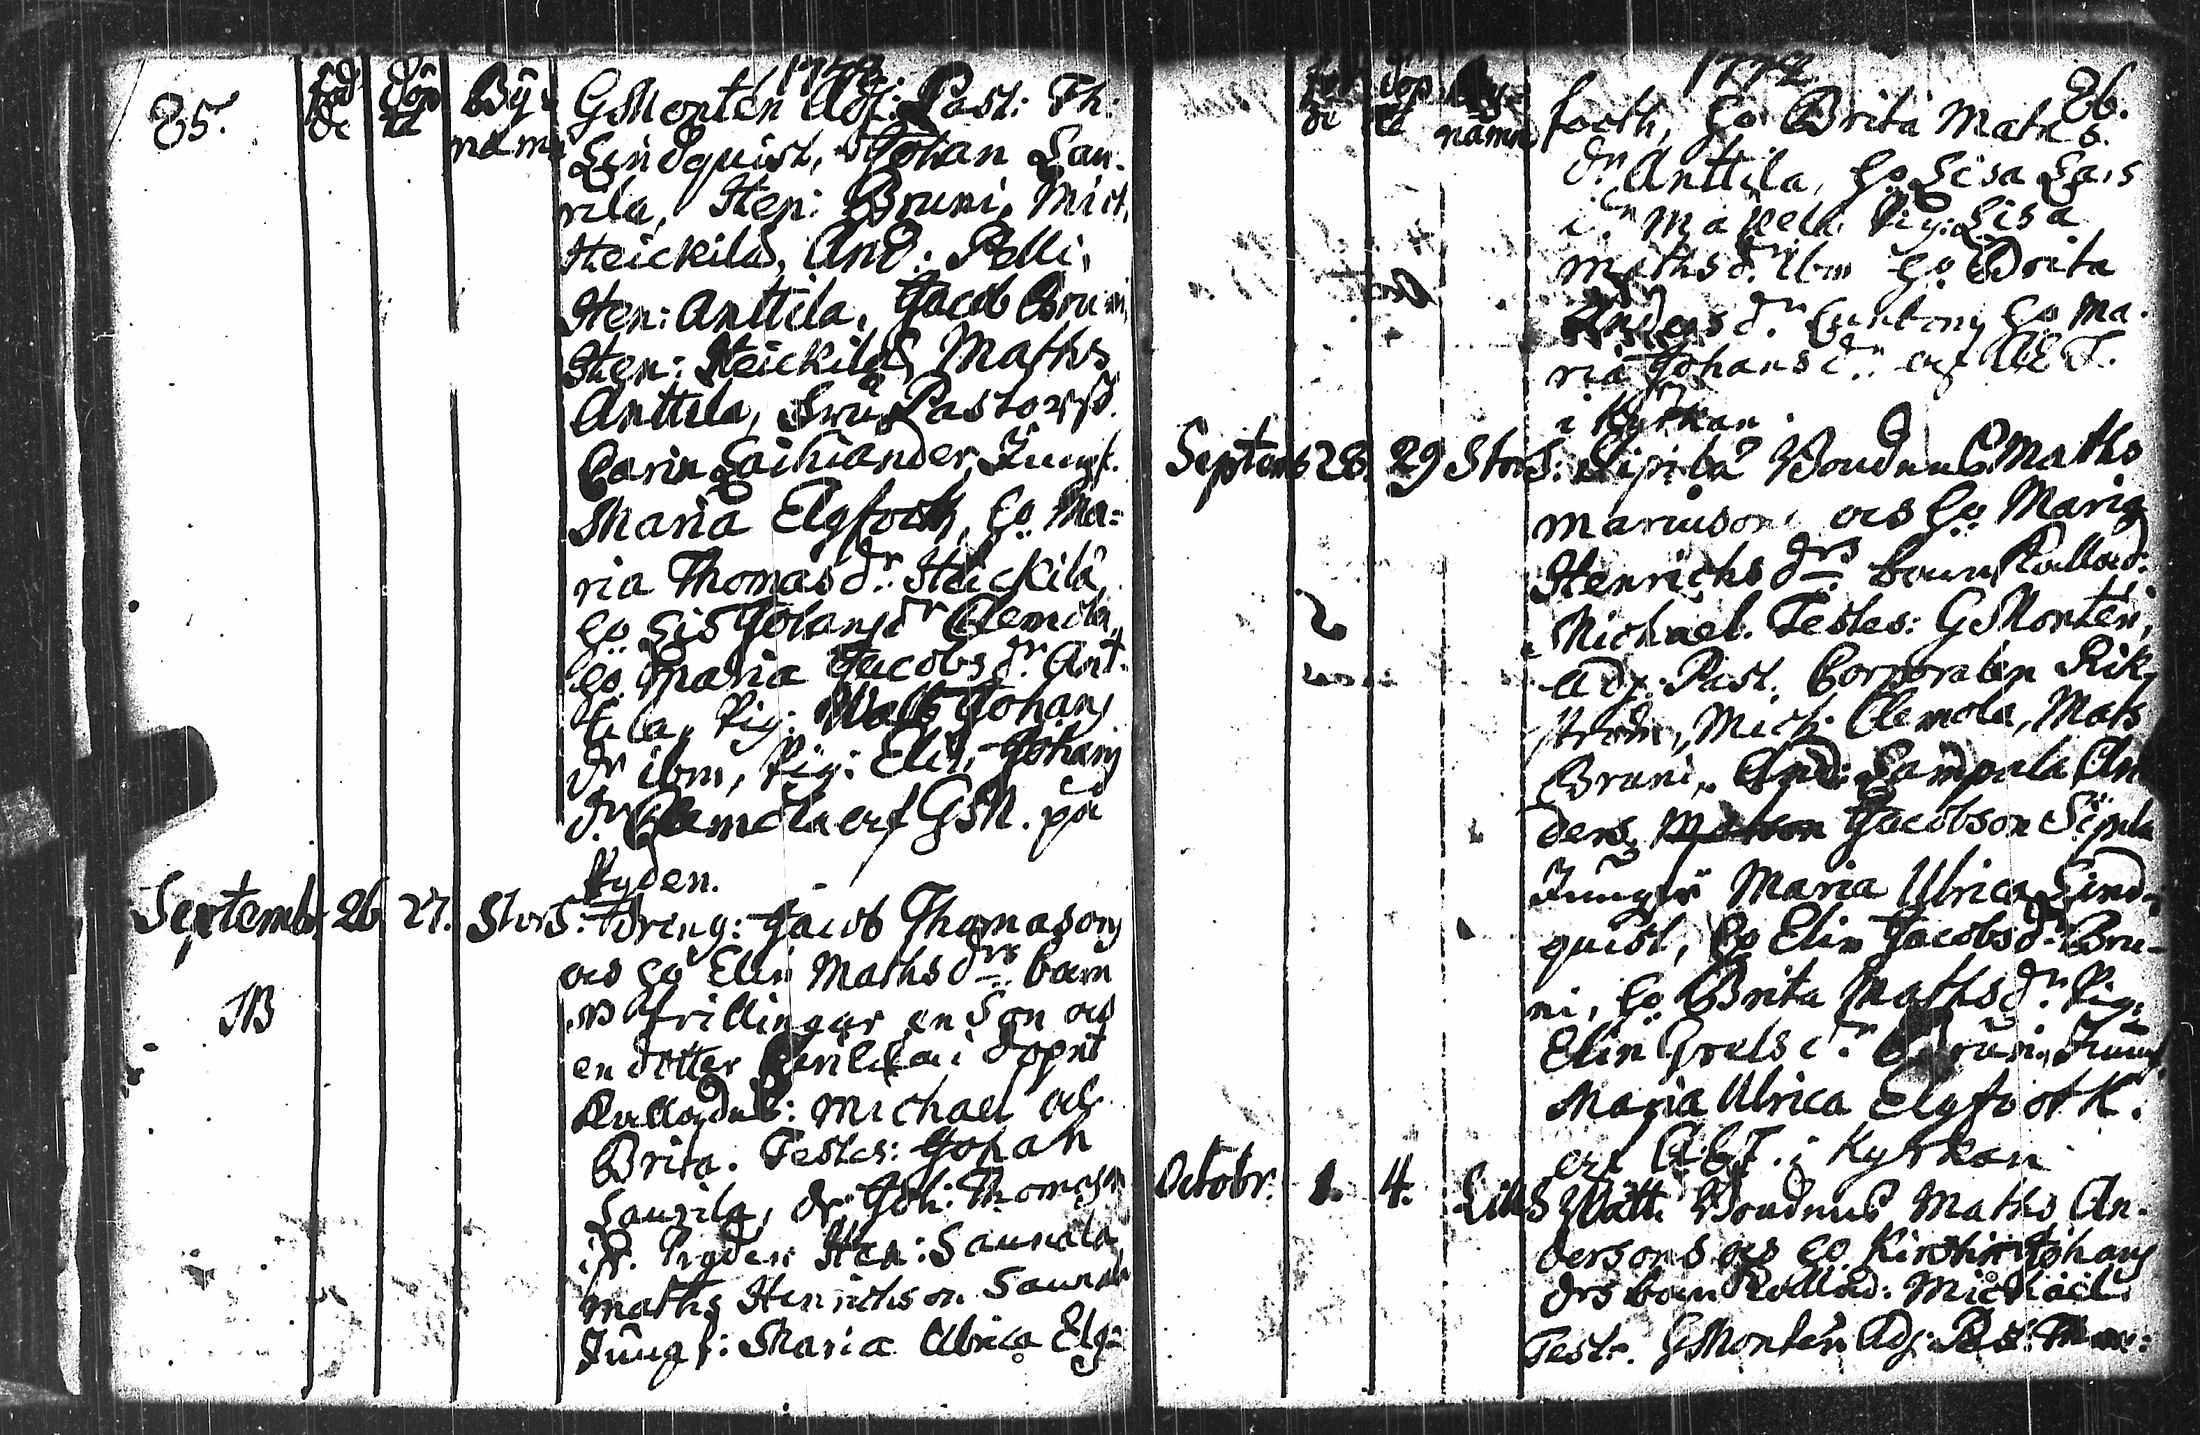 85.
föd
de
döp
te
By-
namn
1772
GMonten Adj: Past: Th:
Lindquist, Johan Lau-
rila, Hen: Bruni, Mich.
Heickilä, And: Pelli,
Hen: Anttila, Jacob Bruni
Hen: Heickilä, Maths
Anttila, Fru Pastorsk.
Carin Laihiander, Jungf.
Maria Elgfooth, ho Ma=
ria Thomas dr Heickilä
ho Lis Johans dr Clemola,
ho Maria Jacobs dr Ant-
tila, Pig: Walb Johans
dr ibm, Pig: Elis. Johans
dr Clemola af GM. på
Ryden.
Septembr 26 27. StorS: Dreng: Jacob Thomasons
ocs ho Elin Maths drs barn
NB trillingar en Son och
en dotter hvilka i dopet
Kallades: Michael och
Brita. Testes: Johan
Laurila, dr Joh: Thomasn
Ryden Hen: Saunala
Maths Henrichson Saunala
Jungf: Maria Ulrica Elg=
NB
1772
86.
föd
de
döp
te
By-
namn
footh, ho Brita Maths
dr Anttila, ho Lisa Lars
dr Pig: Lisa
Maths dr ibm ho Brita
Anders dr ho Ma-
ria Johans dr af
i Kyrkan.
Septemb 28. 29 StorS: Sipilä Bondens Maths
ocs ho Maria
Henrichs drs barn Kallad:
Michael. Testes: GMonten,
Adj: Past. Corporalen Rik-
ström, Mich: Clemola, Mats
Bruni, And: Lampala An
ders Jacobson Sipila
Jungfr Maria Ulrica Lind-
quist, ho Elin Jacobs dr Bru-
ni, ho Brita Maths dr Pig:
Elin Grels dr Bruni, Jung
Maria Ulrica Elgfooth.
af i Kyrkan
Octobr: 1. 4. LillS Bondens Maths An-
dersons ocs ho Kirstin Johans
drs barn Kallad: Michael.
Test: GMonten Adj: Past: